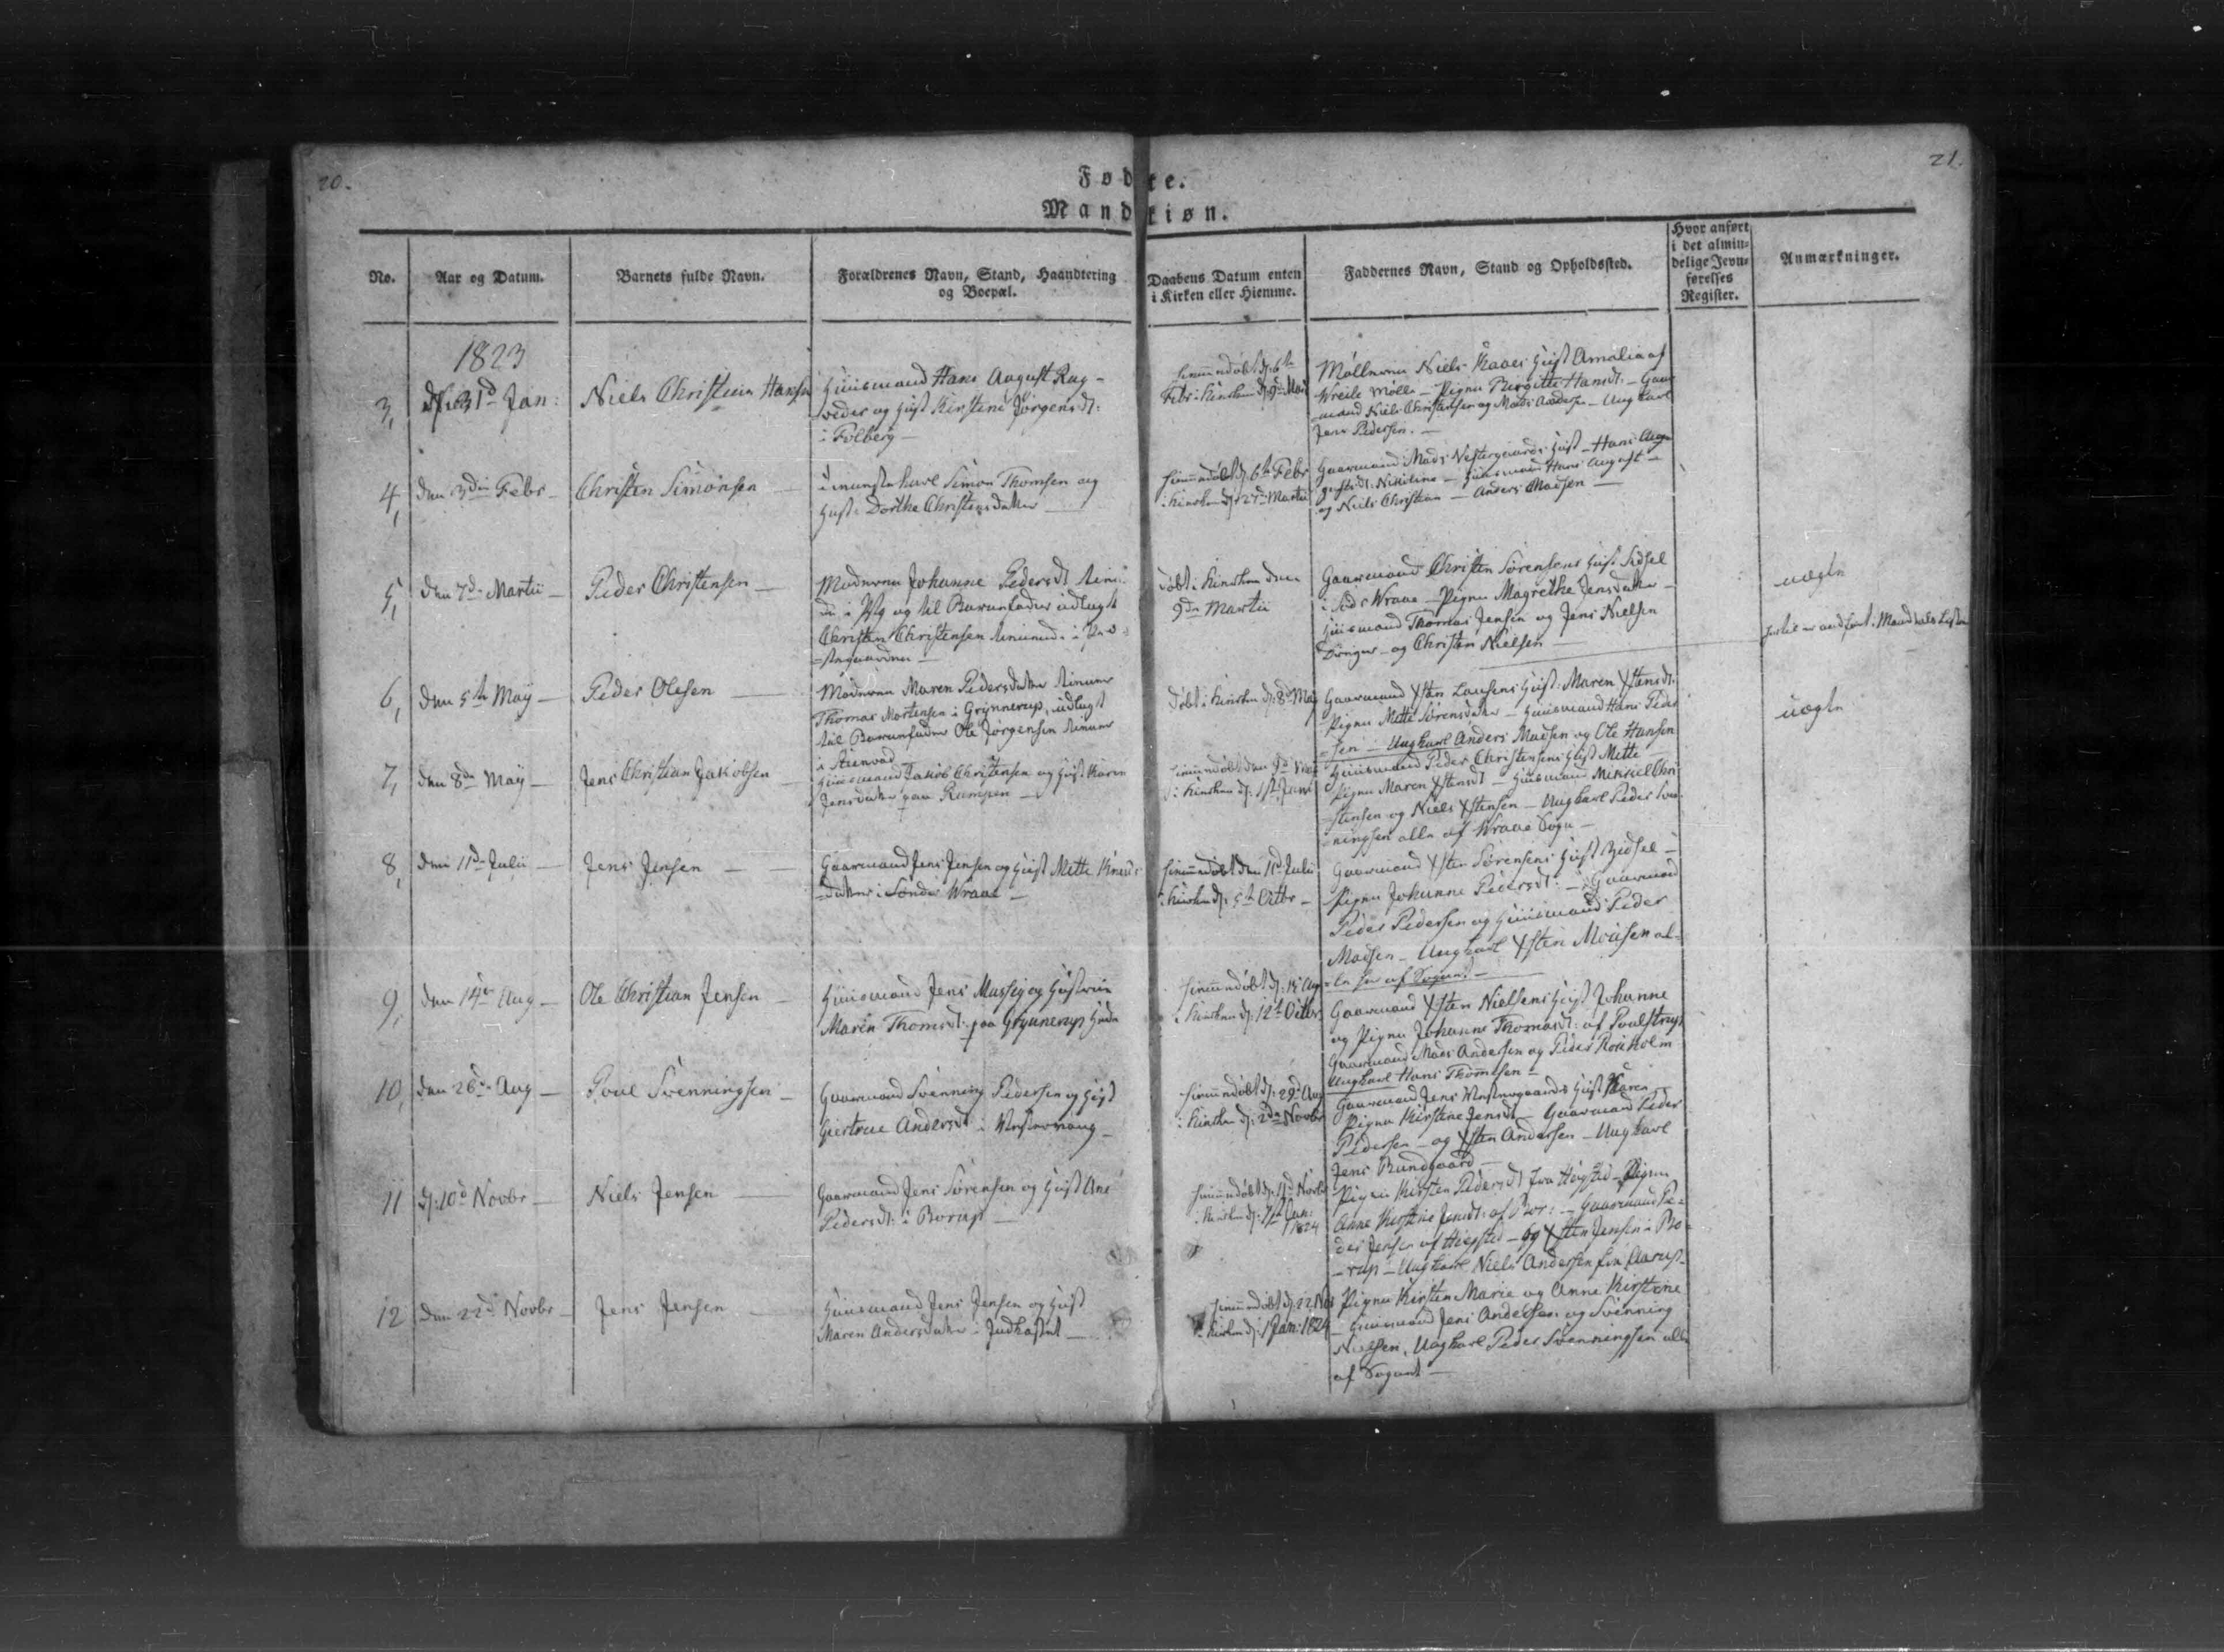 20.
21.
Fødte.
Mandkiøn.
No.
Aar og Datum.
Barnets fulde Navn.
Forældrenes Navn, Stand, Haandtering
og Boepæl.
Daabens Datum enten
i Kirken eller Hiemme.
Faddernes Navn, Stand og Opholdssted.
Hvor anført
i det almin=
delige Jevn=
førelses
Register.
Anmærkninger.
1823
3,
31d Jan:
Niels Christian Hansen
Huusmand Hans August
og Hust Kirstine Jørgensdt:
i Folberg —
hiemmedøbt d: 6te
Febr: i Kirken d:
Mølleren Niels Kaaes Hust Amalia af
Wreile Mølle — Pigen Birgitte Hansdt: — Gaar
mand Niels Christensen og Mads Andersen — Ungkarl
Jens Pedersen. —
4,
den 3die Febr —
Christen Simonsen —
karl Simon Thomsen og
Hust: Dorthe Christensdatter —
hiemmedøbt d: 6te Febr
i Kirken d: 27de Martii
Gaarmand Mads Vestergaards Hust — Hans Augu
Nikoline — Huusmand Hans August —
og Niels Christian — Anders Madsen —
5,
den 7de Martii —
Peder Christensen —
Moderen Johanne Pedersdt tiene
og til Barnefader udlagt
Christen Christensen tienende i
døbt i Kirken den
9de Martii
Gaarmand Christen Sørensens Hust Sidsel
i Wraae — Pigen Magrethe Jensdatter —
Huusmand Thomas Jensen og Jens Nielsen
og Christen Nielsen —
uægte
6,
den 5te May —
Peder Olesen —
Moderen Maren Pedersdatter tiener
Thomas Mortensen i Grynnerup, udlagt
til Barnefader Ole Jørgensen tiener
i Steenvad
døbt i Kirken d: 8de May
Gaarmand Xsten Lausens Hust: Maren Xstensdt:
Pigen Mette Sørensdatter — Huusmand Hans Peder
=sen — Ungkarl Anders Madsen og Ole Hansen
uægte
7,
den 8de May —
Jens Christian Jakobsen —
Huusmand Jakob Christensen og Hust Karen
Jensdatter paa Rampen —
i Kirken d: 1ste Juni
Huusmand Peder Christensens Hust Mette —
Pigen Maren Xstensdt — Huusmand Mikkel Chri
=stensen og Niels Xstensen — Ungkarl Peder Sven
=ningsen alle af Wraae Sogn —
8,
den 11de Julii —
Jens Jensen —
Gaarmand Jens Jensen og Hust Mette Knuds
=datter i Sønder Wraae —
hiemmedøbt den 11d Julii
i Kirken d: 5te Octbr —
Gaarmand Xsten Sørensens Hust Zidsel —
Pigen Johanne Pedersdt: — Gaarmand
Peder Pedersen og Huusmand Peder
Madsen — Ungkarl Xsten Mousen al=
=le her af Sognet —
9,
den 14de Aug —
Ole Christian Jensen —
Huusmand Jens Mussig og Hustrue
Maren Thomsdt: paa Grynnerup Hede
hiemmedøbt d: 15 Aug
i Kirken d: 12te Octbr
Gaarmand Xsten Nielsens Hust Johanne
og Pigen Johanne Thomasdt: af Poulstrup
Gaarmand Mads Andersen og Peder Roeholm
Ungkarl Hans Thomsen —
10,
den 26de Aug —
Poul Svenningsen —
Gaarmand Svenning Pedersen og Hust
Giertrue Andersdt i Westervang —
hiemmedøbt d: 29d Aug
i Kirken d: 2den Novbr
Gaarmand Jens Westergaards Hust Karen
Pigen Kirstine Jensdt — Gaarmand Peder
Pedersen — og Xsten Andersen — Ungkarl
Jens Bundgaard —
11
d: 10d Novbr —
Niels Jensen —
Gaarmand Jens Sørensen og Hust Ane
Pedersdt: i Borup —
hiemmedøbt d: 11d Novbr
i Kirken d: Jan:
1824
Pigen Kirsten Pedersdt fra Høgsted — Pigen
Anne Kirstine Jensdt: af Bor: — Gaarmand Pe=
der Jensen af Høgsted — og Xsten Jensen i Bo=
=rup — Ungkarl Niels Andersen fra Aarup —
12
den 22d Novbr —
Jens Jensen —
Huusmand Jens Jensen og Hust
Maren Andersdatter i Judkastet —
hiemmedøbt d: 22 Nov
i Kirken d: 1 Jan: 1824
Pigen Kirsten Marie og Anne Kirstine
— Huusmand Jens Andersen og Svenning
Nielsen, Ungkarl Peder Svenningsen alle
af Sognet —